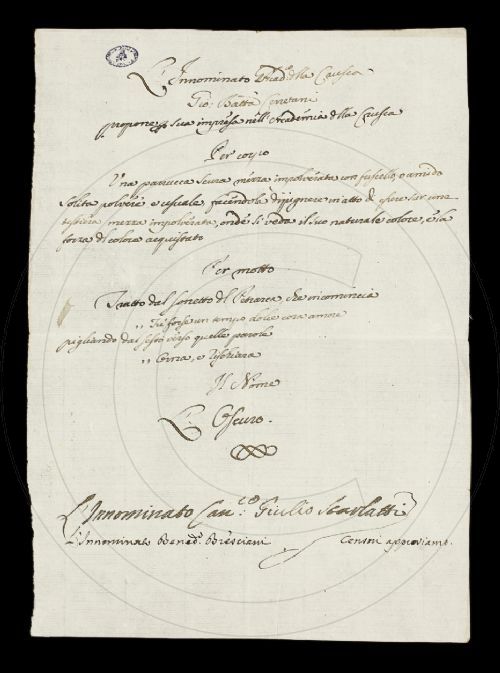 L'Innominato Acad.co della Crusca
Gio: Batta Cerretani
propone p sua impresa nell'Academia della Crusca
Per corpo
Una parrucca scura mezza impolverata con fuscello, o amido
solita polvere e usuale, facendola dipignere in atto di esser
mezza impolverata, onde si veda il suo naturale colore, e la
forza di colore acquistato
Per motto
Tratto dal sonetto del Petrarca, che incomincia
,, Fu forse un tempo dolce cosa amore
pigliando dal sesto verso quelle parole
,, Orna, e
Il Nome
L'Oscuro.
L'Innominato Cau:co Giulio Scarlatti
L'Innominato Bened.o Bresciani Censori approviamo.